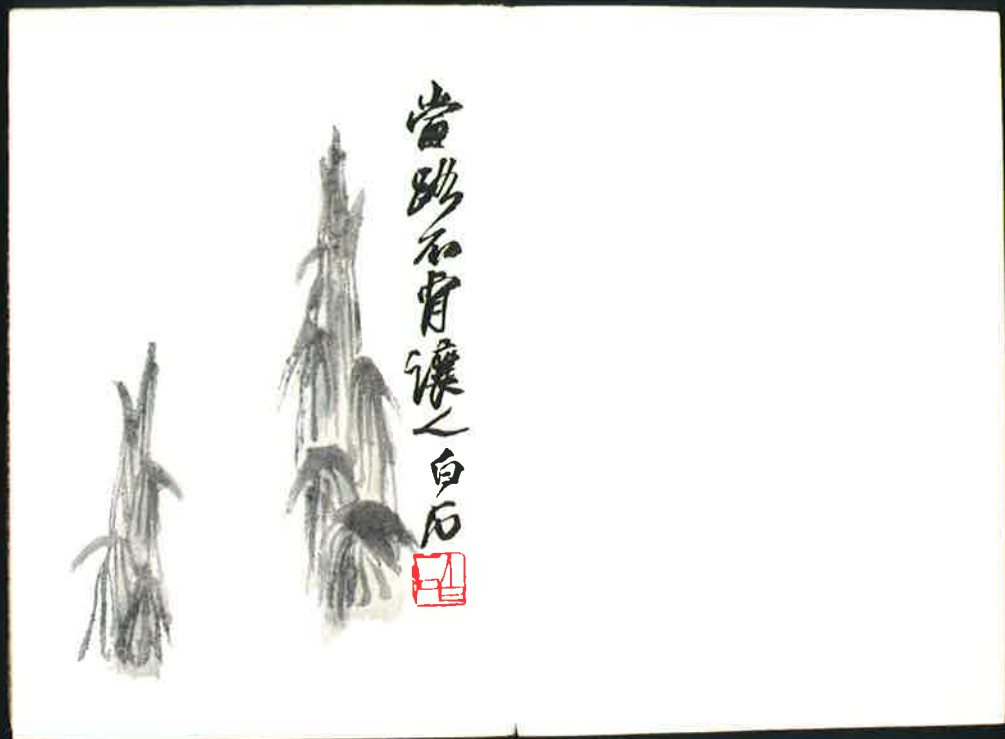 當路不肯讓人白石